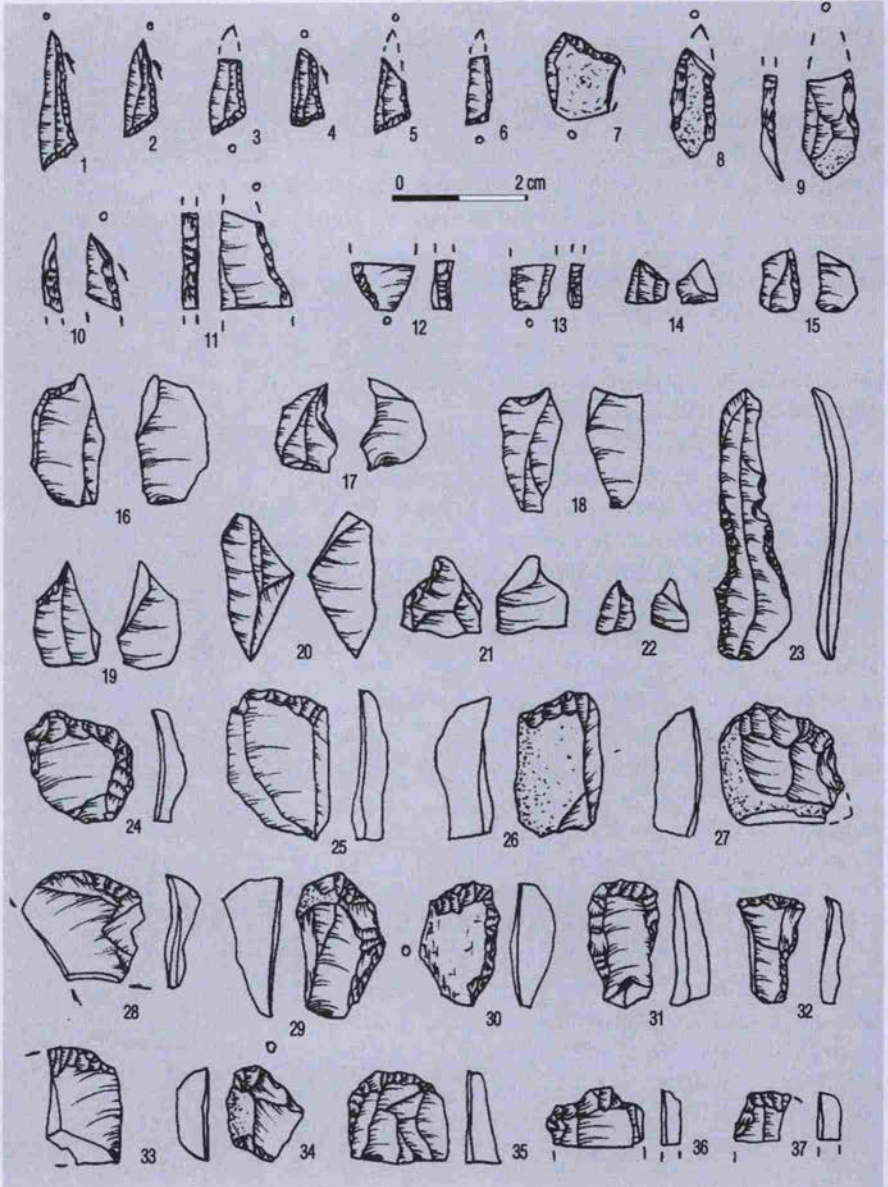 1 2 3 4 5 6 7 8 9
0 2 cm
10 11 12 13 14 15
16 17 18
19 20 21 22 23
24 25 26 27
28 29 30 31 32
33 34 35 36 37